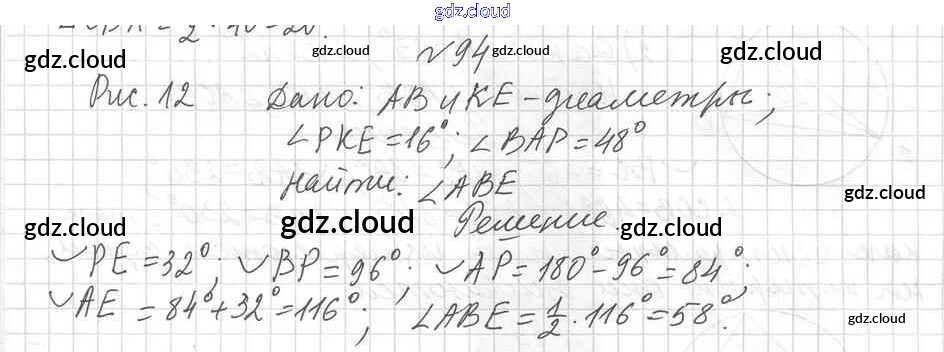 gdz.cloud
∠ВРК = 1/2 · 40 = 20°.
gdz.cloud gdz.cloud №94 gdz.cloud gdz.cloud
Рис. 12 Дано: AB и KE – диаметры;
∠PKE = 16°; ∠BAP = 48°
Найти: ∠ABE gdz.cloud
gdz.cloud gdz.cloud Решение. gdz.cloud
◡PE = 32°; ◡BP = 96°; ◡AP = 180° – 96° = 84°;
◡AE = 84° + 32° = 116°; ∠ABE = 1/2 · 116° = 58°.
gdz.cloud